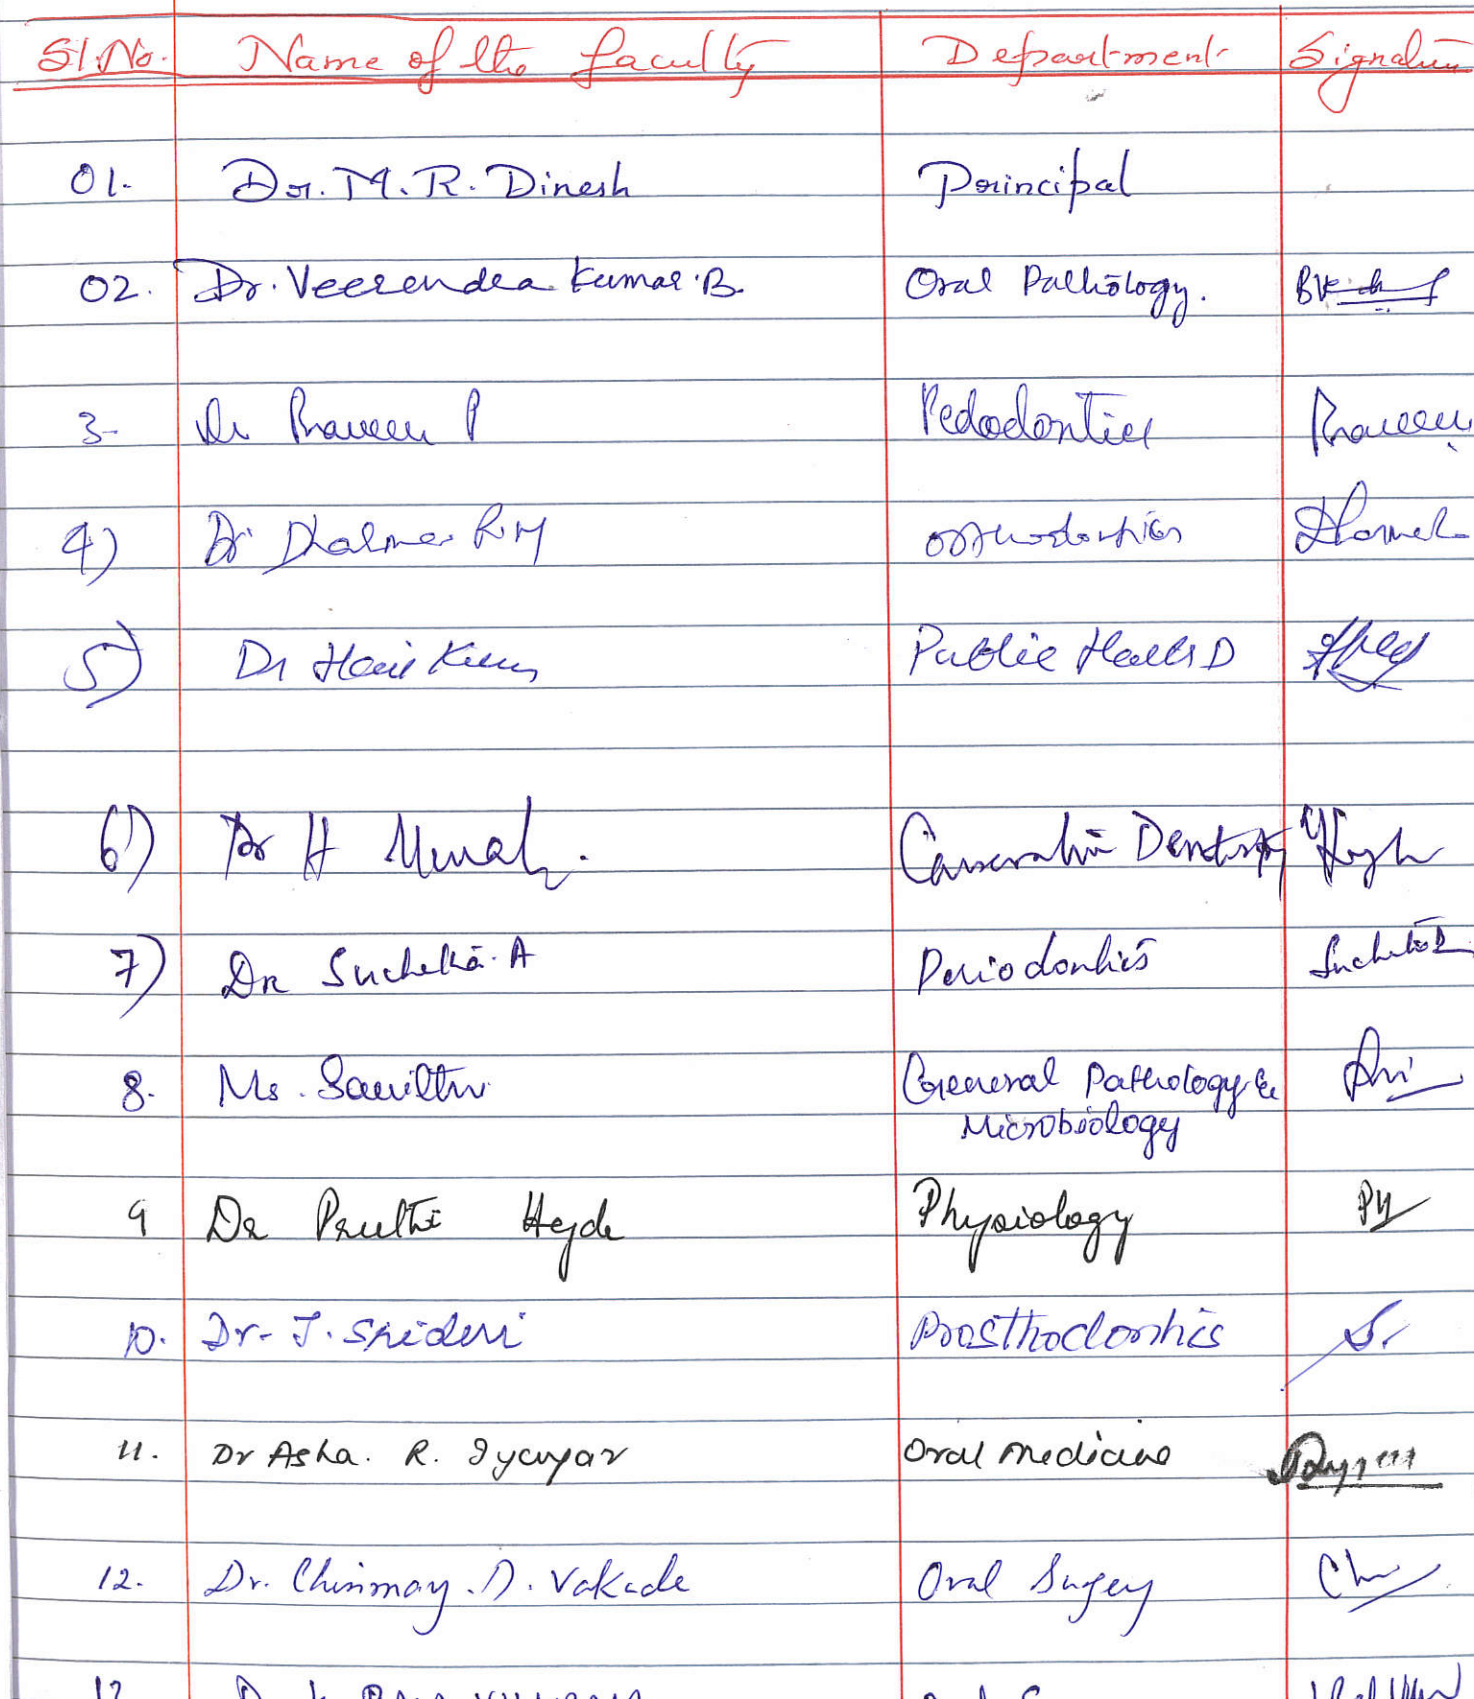 Sl.No. Name of the faculty Department Signature
01. Dr. M. R. Dinesh Principal
02. Dr. Veerendra Kumar. B. Oral Pathology.
3- Dr Praveen P Pedodontics Praveen
4) Dr Dharma R M Orthodontics
5) Dr Hari Kumar Public Health D
6) Dr H Murali. Conservative Dentistry
7) Dr Sucheta. A Periodontics Sucheta
8. Ms. Savitha General Pathology &
Microbiology
9 Dr Pruthi Hegde Physiology PH
10. Dr- J. Sridevi Prosthodontics S.
11. Dr Asha. R. Iyengar Oral medicine
12. Dr. Chinmay. D. Vakade Oral Surgery Ch